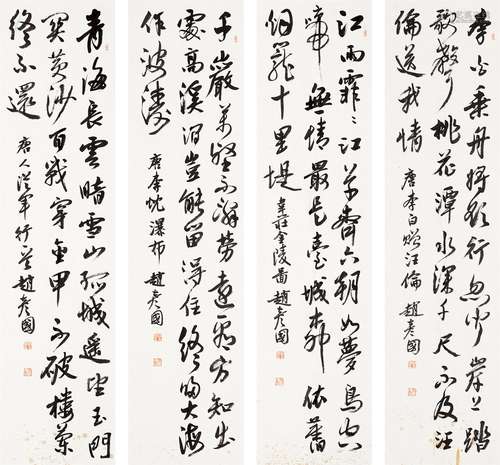 李白乘舟將欲行忽聞岸上踏
歌聲桃花潭水深千尺不及汪
倫送我情 唐李白贈汪倫 趙彥國
江雨霏〻江草齊六朝如夢鳥空
啼無情最是臺城柳依舊
烟籠十里堤 韋莊金陵圖趙彥國
千巖萬壑不辭勞遠看方知出
處高溪澗豈能留得住終歸大海
作波濤 唐李忱瀑布 趙彥國
青海長雲暗雪山孤城遥望玉門
關黃沙百戰穿金甲不破樓蘭
終不還 唐人從軍行 趙彥國